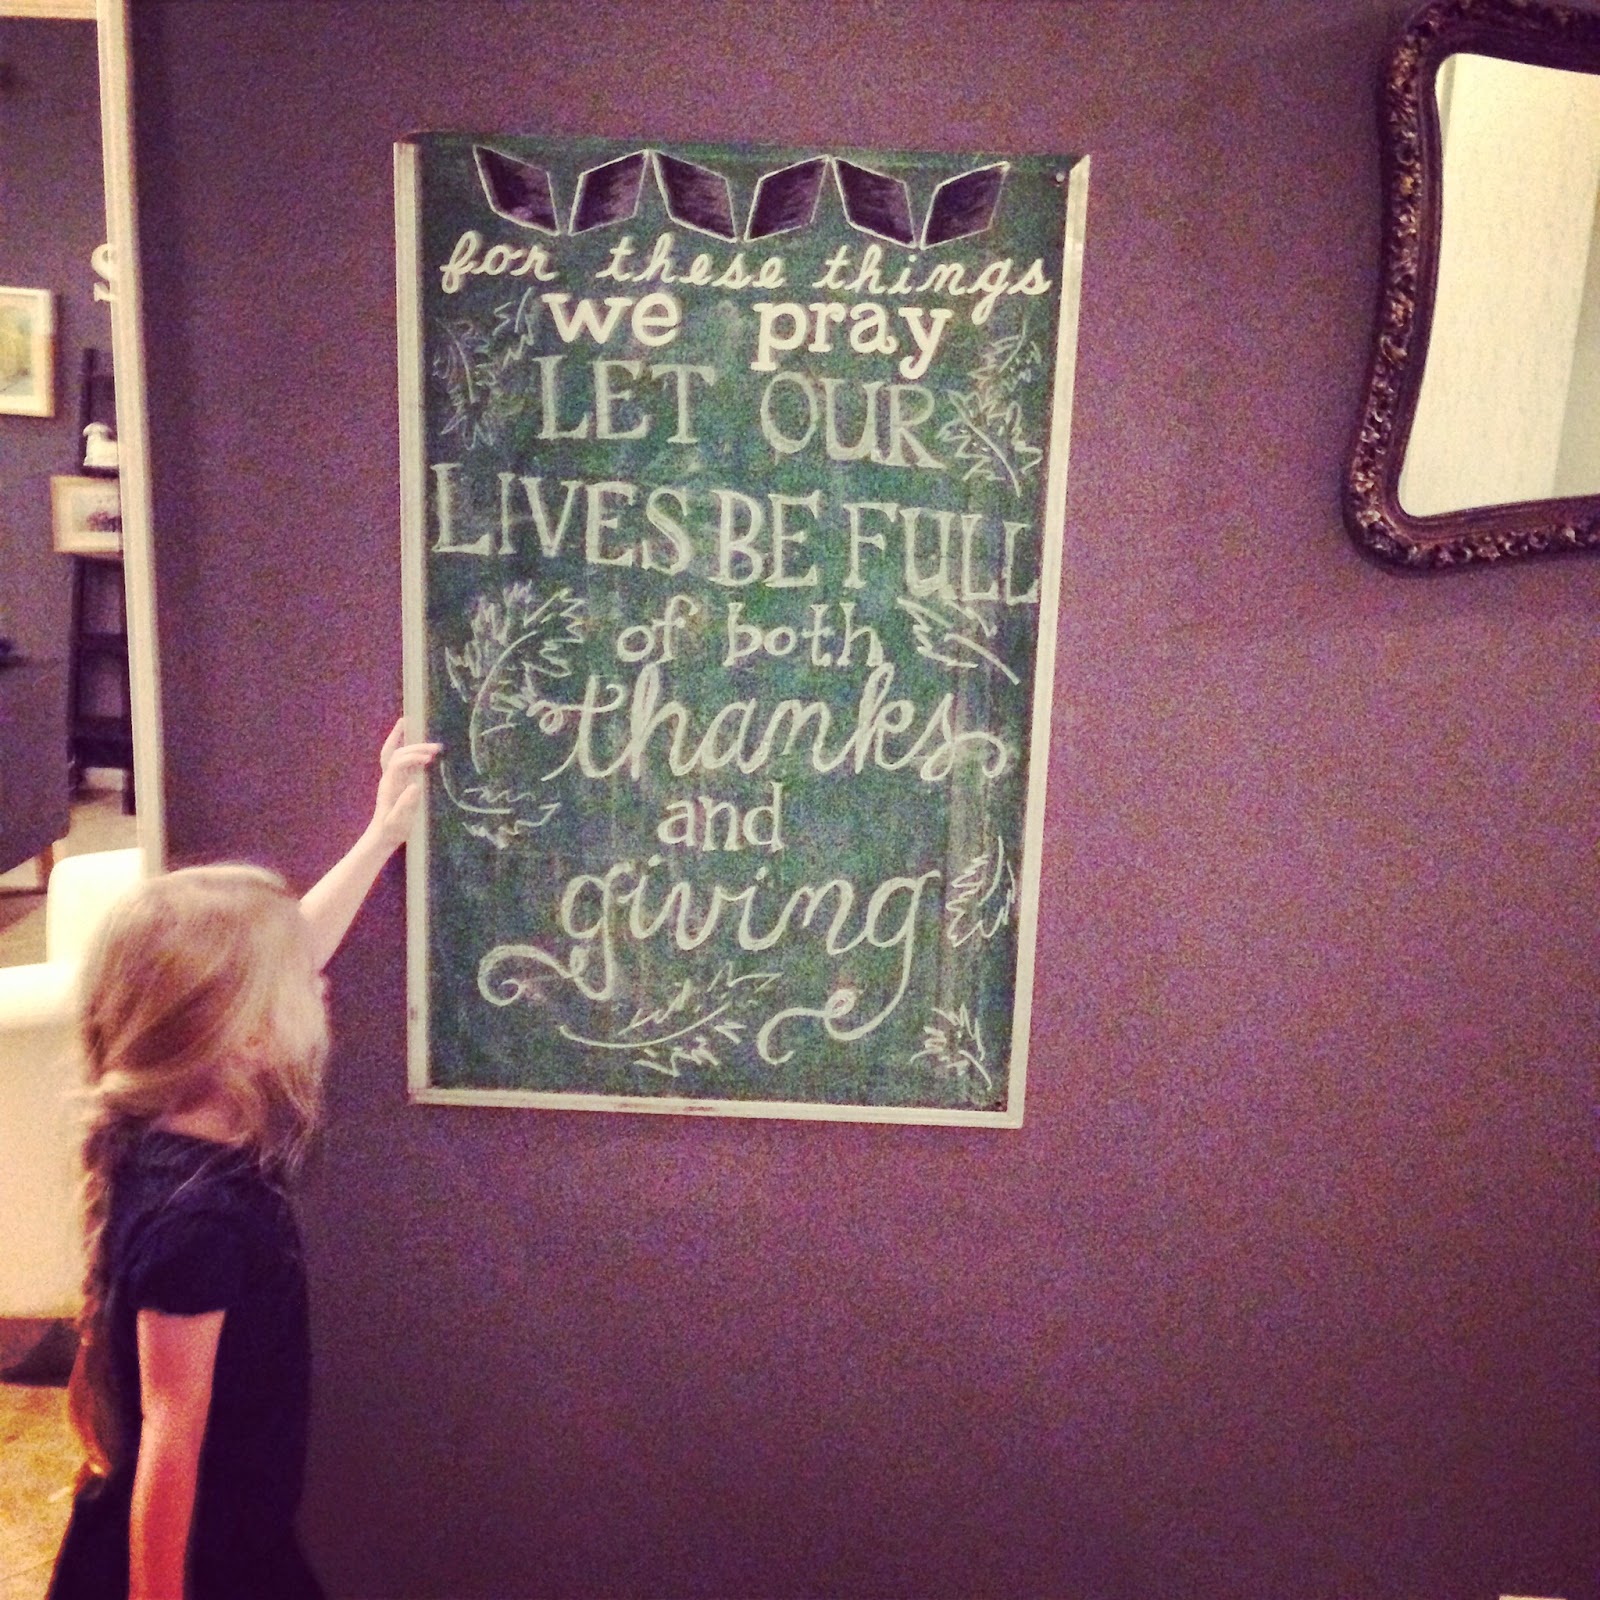 for these things
we pray
LET OUR
LIVES BE FULL
of both
thanks
and
giving
S